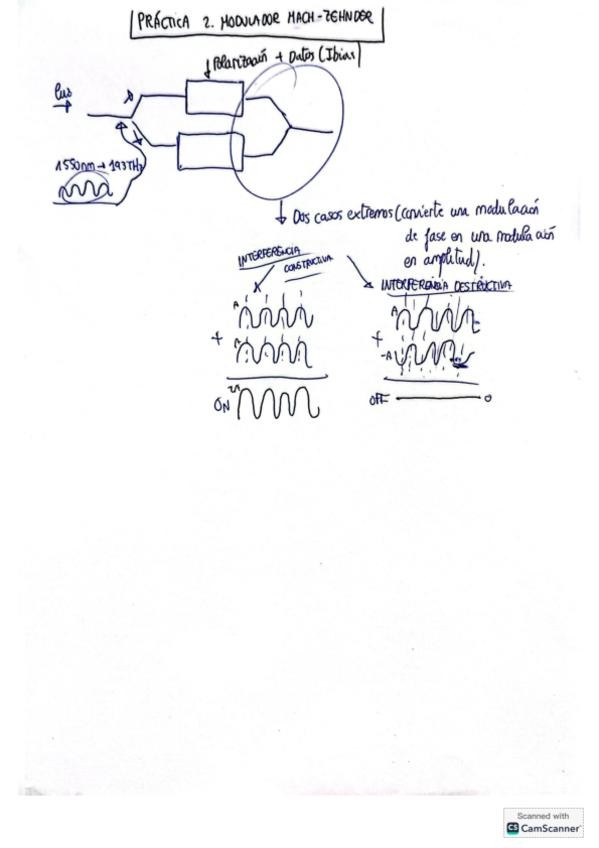 PRÁCTICA 2. MODULADOR MACH-ZEHNDER
Polarización + Datos (Ibias)
luz
1550nm → 193THz
Dos casos extremos (convierte una modulación
de fase en una modulación
en amplitud).
INTERFERENCIA
CONSTRUCTIVA
INTERFERENCIA DESTRUCTIVA
A
A
+
+
A
-A
2A
ON
OFF
0
Scanned with
CS CamScanner